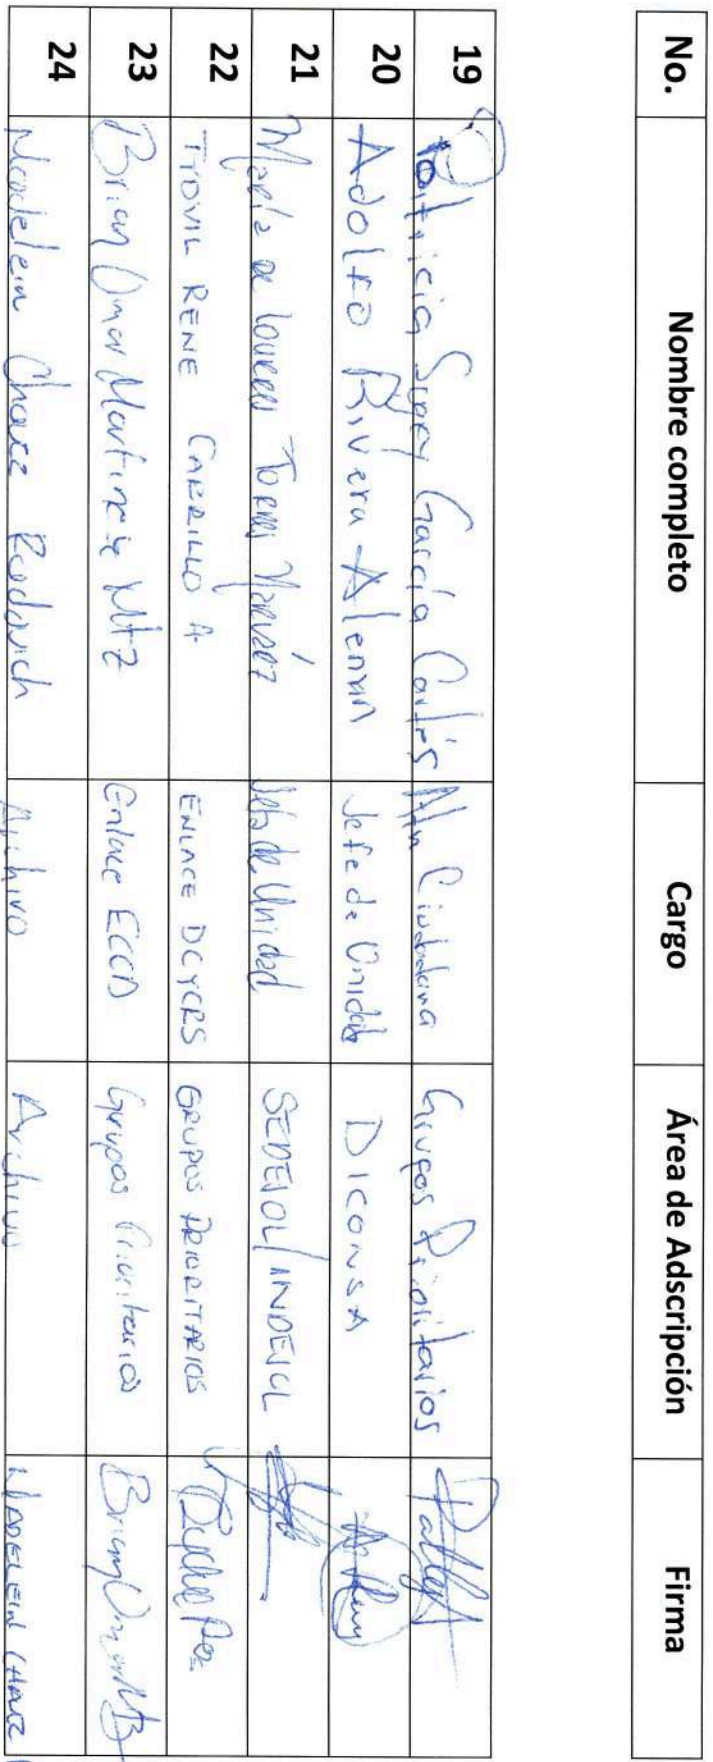 No. Nombre completo Cargo Área de Adscripción Firma
19 Patricia García Cortés Atn Ciudadana Grupos Prioritarios
20 Adolfo Rivera Alemán Jefe de Unidad DICONSA
21 María de Lourdes Torres Narváez Jefa de Unidad SEDESOL/INDESOL
22 RENE CARRILLO A. ENLACE DCYCRS GRUPOS PRIORITARIOS
23 Brian Omar Martínez Mtz Enlace ECCD Grupos Prioritarios
24 Madelein Archivo Archivo MADELEIN